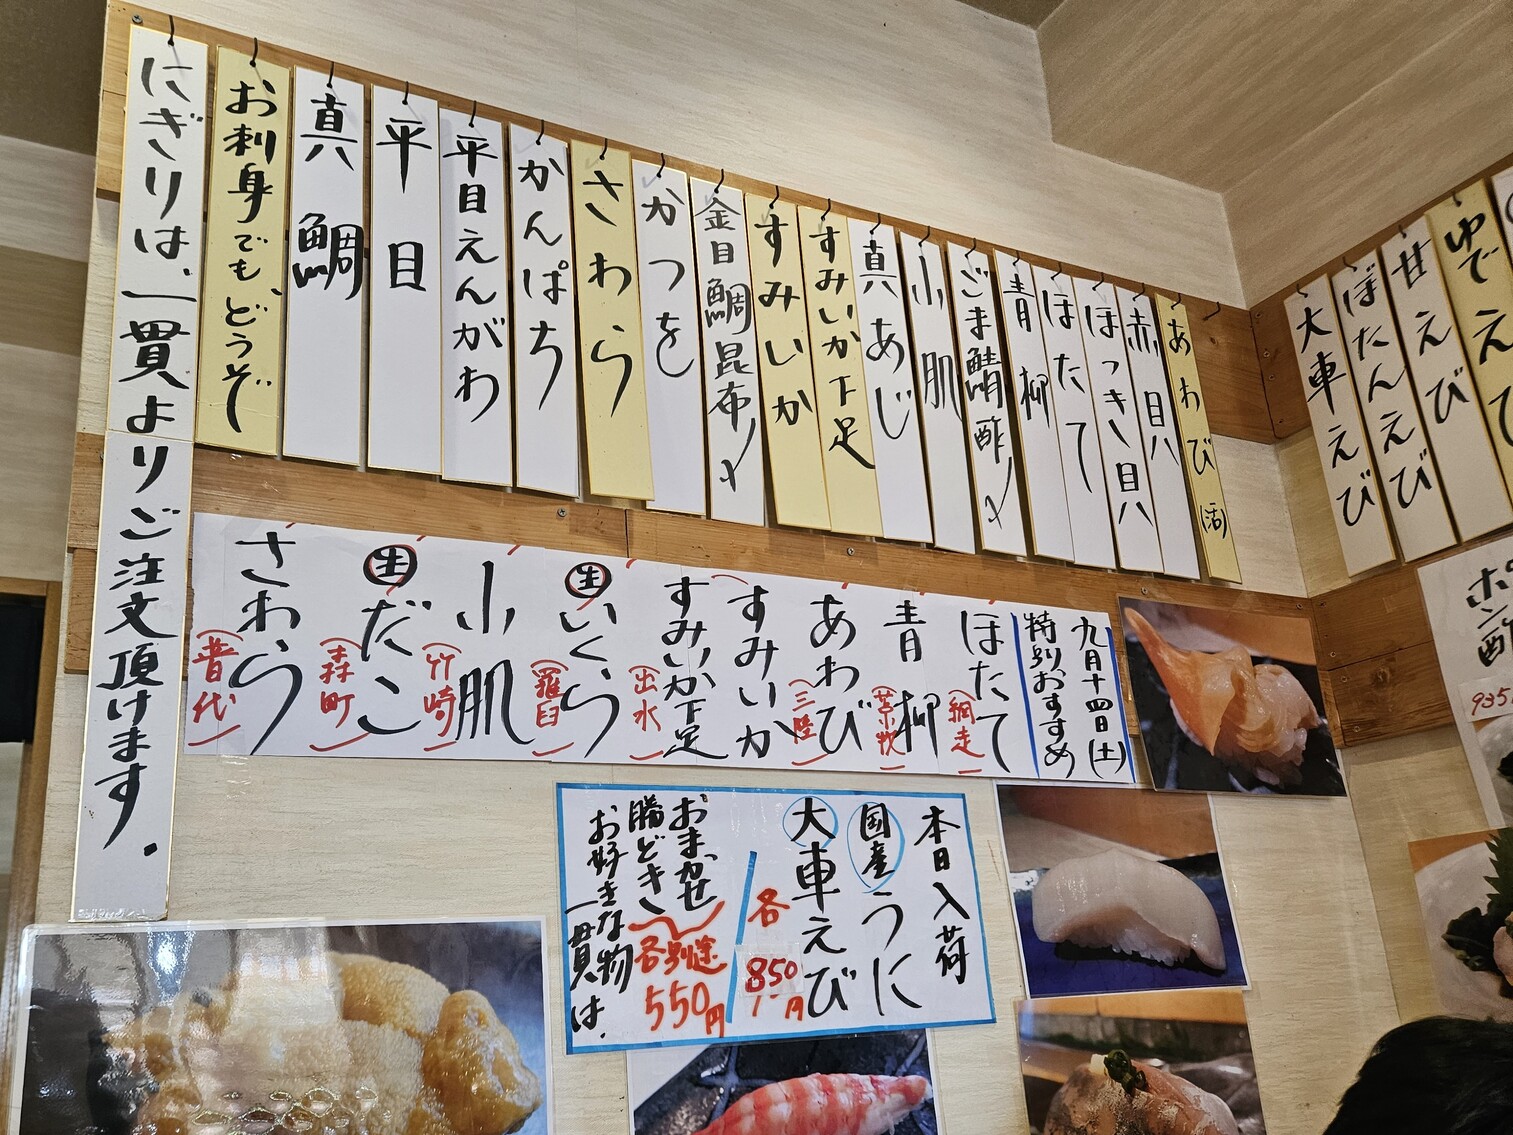 にぎりは、一貫よりご注文頂けます。
お刺身でも、どうぞ
真鯛
平目
平目えんがわ
かんぱち
さわら
かつを
金目鯛昆布〆
すみいか
すみいか下足
真あじ
小肌
ごま鯖酢〆
青柳
ほたて
ほっき貝
赤貝
あわび(活)
大車えび
ぼたんえび
甘えび
ゆでえ
九月十四日(土)
特別おすすめ
ほたて
(網走)
青柳
(苫小牧)
あわび
(三陸)
すみいか
すみいか下足
(出水)
生いくら
(羅臼)
小肌
(竹崎)
生だこ
(森町)
さわら
(普代)
本日入荷
国産うに
大車えび
各850円
おまかせ
勝どき
各別途550円
お好きな物
一貫は、
ポン酢
935